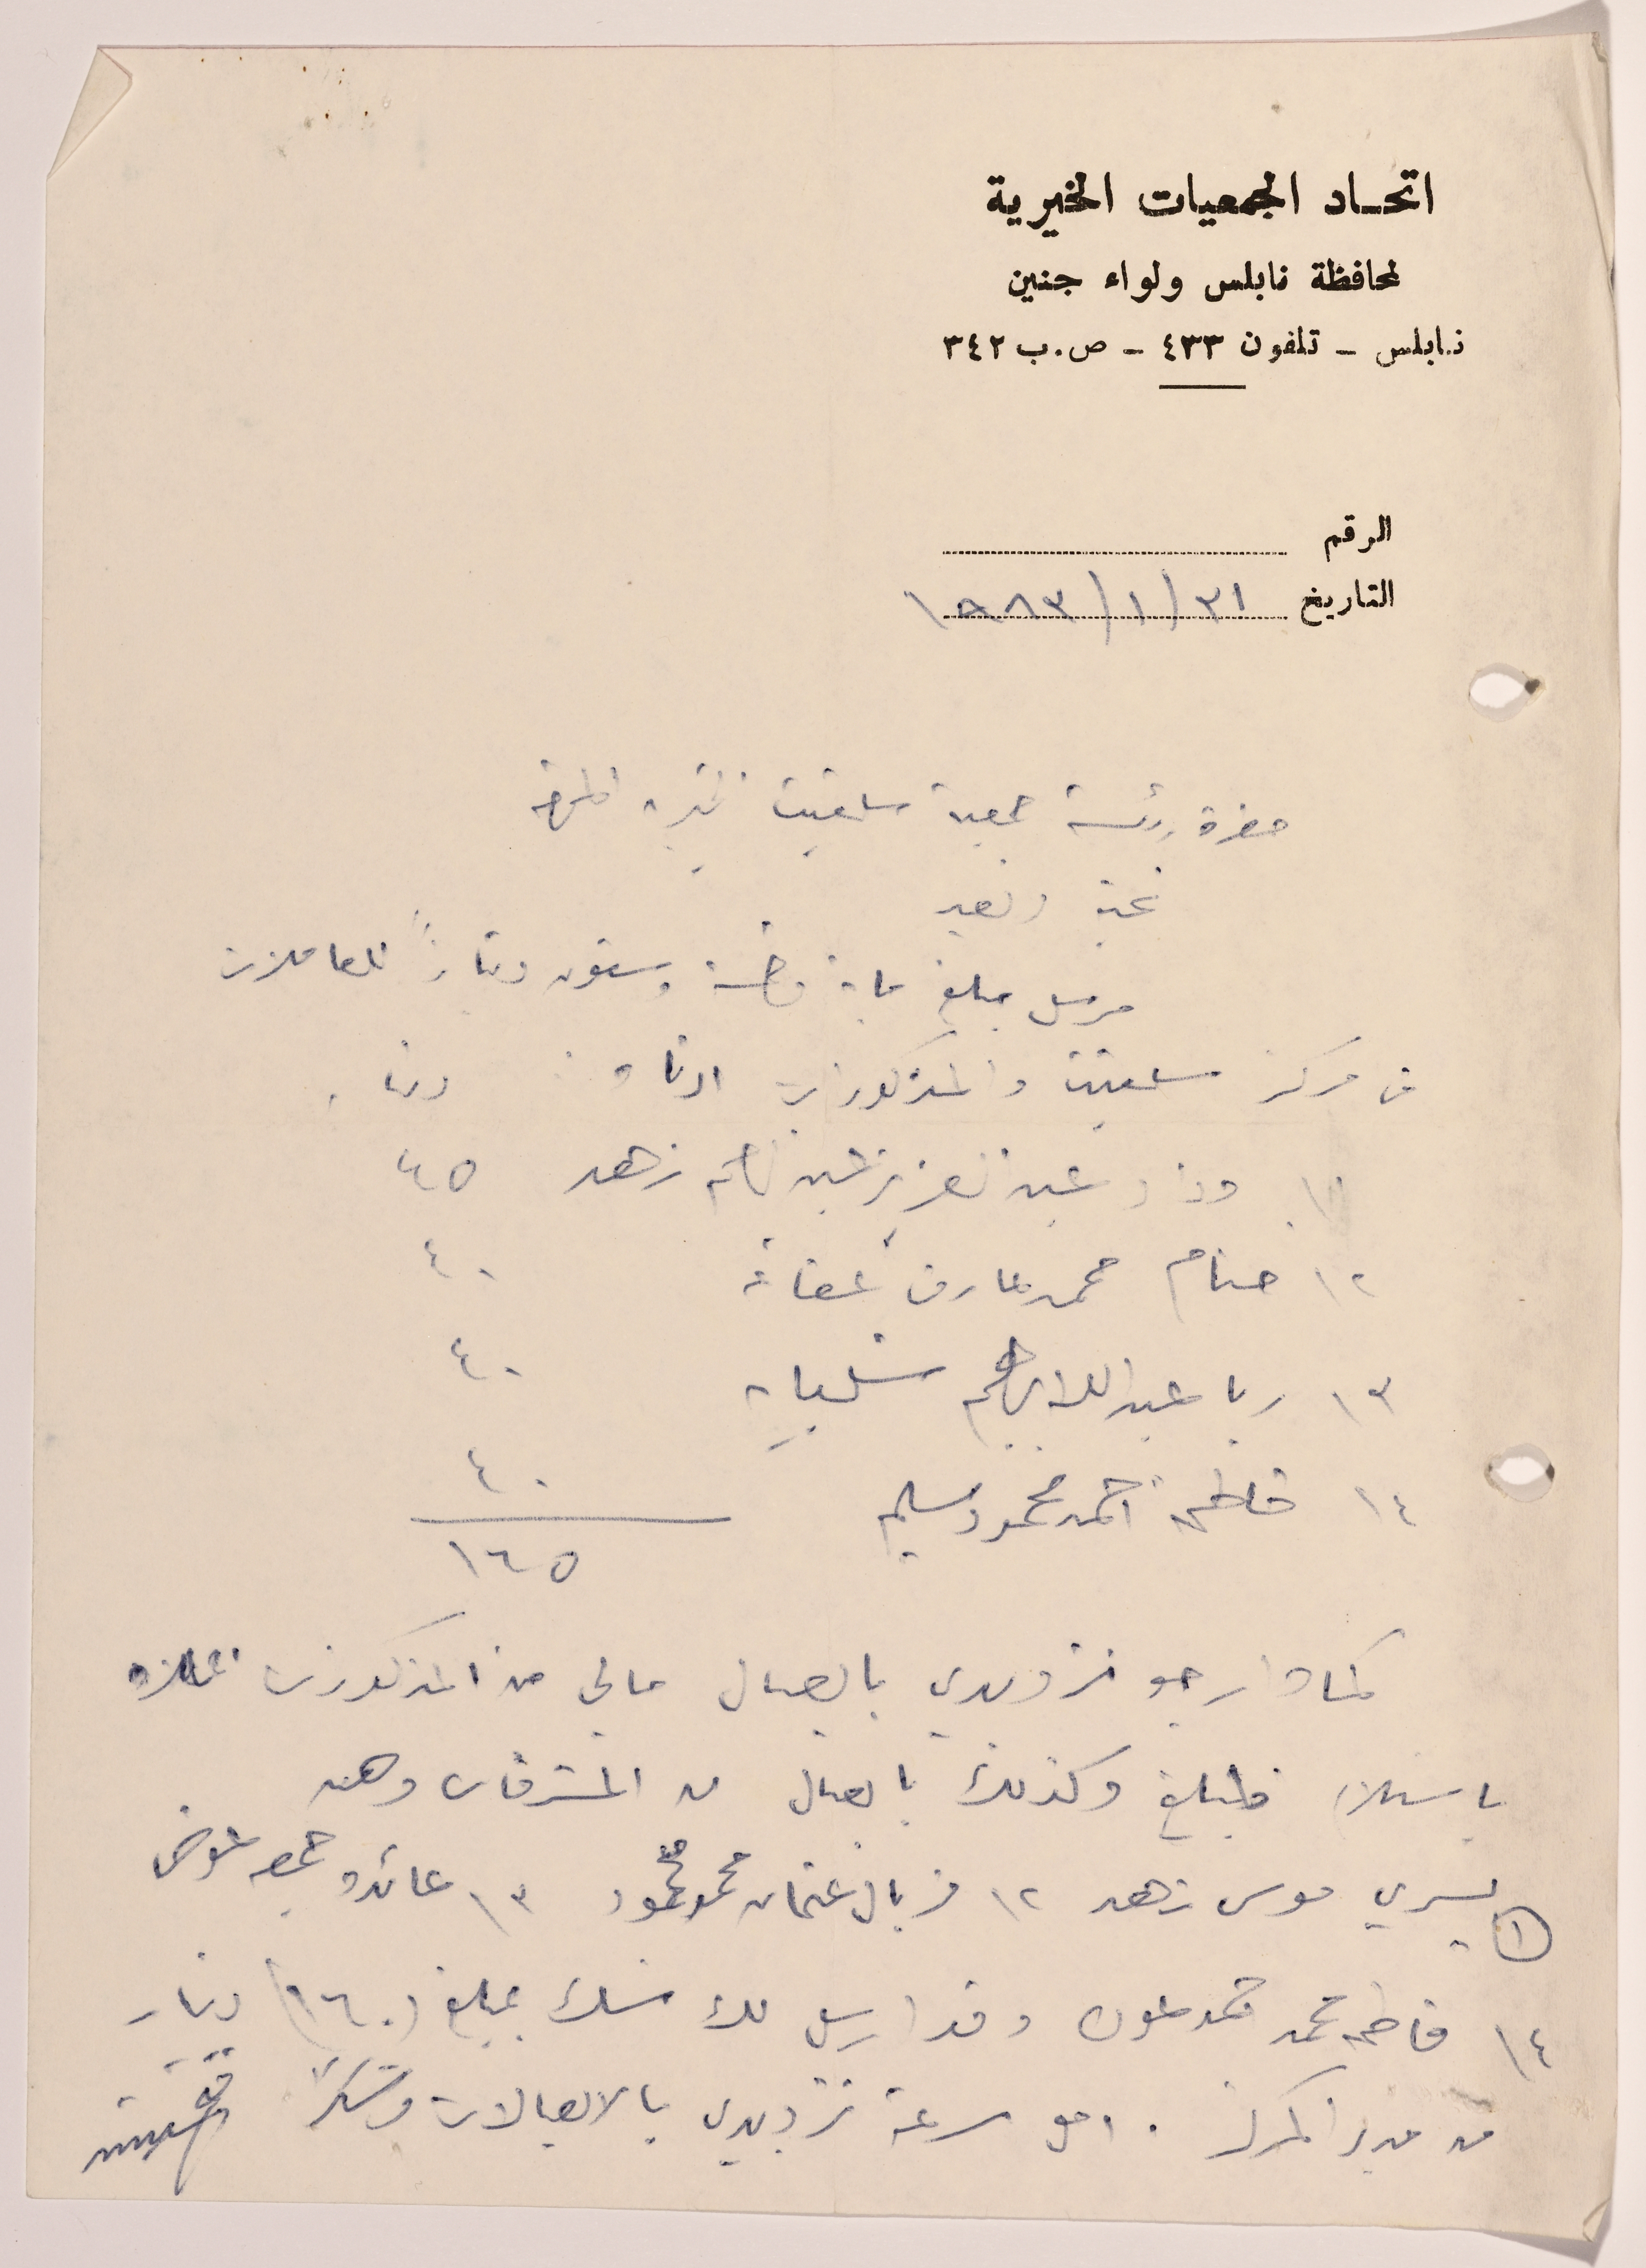 اتحاد الجمعيات الخيرية
لمحافظة نابلس ولواء جنين
نابلس - تلفون ٤٣٣ - ص.ب ٣٤٢
الرقم
التاريخ ٣١/١/١٩٨٣
حضرة رئيسة جمعية سلفيت الخيرية المحترمة
تحية وبعد
مرسل مبلغ ماية وخمسة وستون ديناراً للعاملات
في مركز سلفيت والمذكورات ادناه : دينار
١\ وداد عبد العزيز عبد الرحيم زهد ٤٥
٢\ ختام محمد عارف عفانة ٤٠
٣\ ربا عبد الله ابراهيم ٤٠
٤\ فاطمة احمد محمود سليم ٤٠
١٦٥
كما ارجو تزويدي بايصال مالي من المذكورات اعلاه
باستلام المبلغ وكذلك بايصال من المشرفات وهن
١ يسرى موسى زهد ٢\ فريال عثمان محمود ٣\ عائده جمعه عوض
٤\ فاطمه محمد محمد وقد ارسل لك شك بمبلغ (١٦٠) دينار
من مدير المركز . امل سرعة تزويدي بالايصالات وشكراً